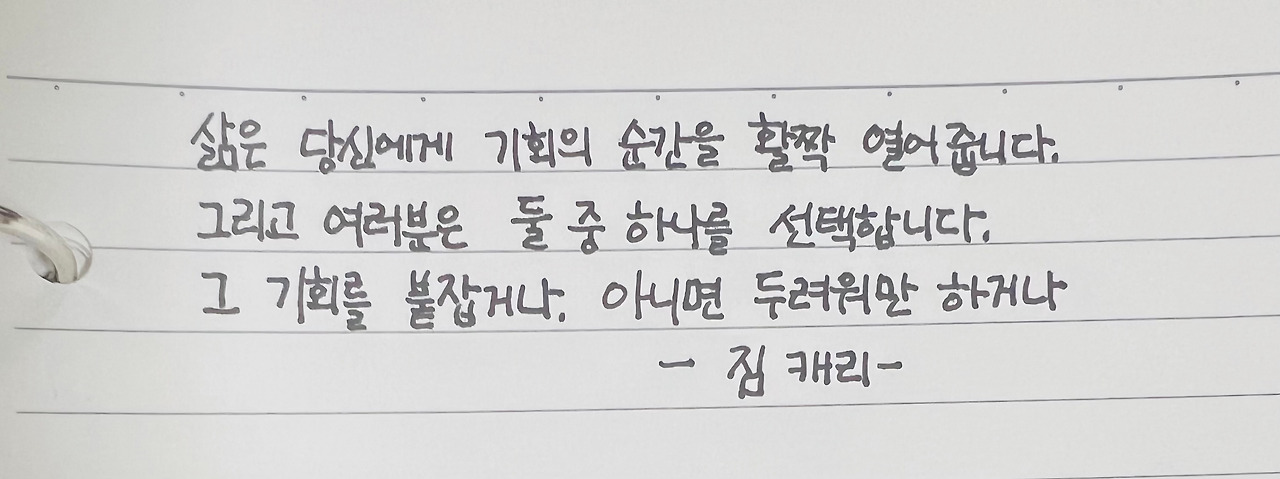 삶은 당신에게 기회의 순간을 활짝 열어줍니다.
그리고 여러분은 둘 중 하나를 선택합니다.
그 기회를 붙잡거나. 아니면 두려워만 하거나
- 짐 캐리 -